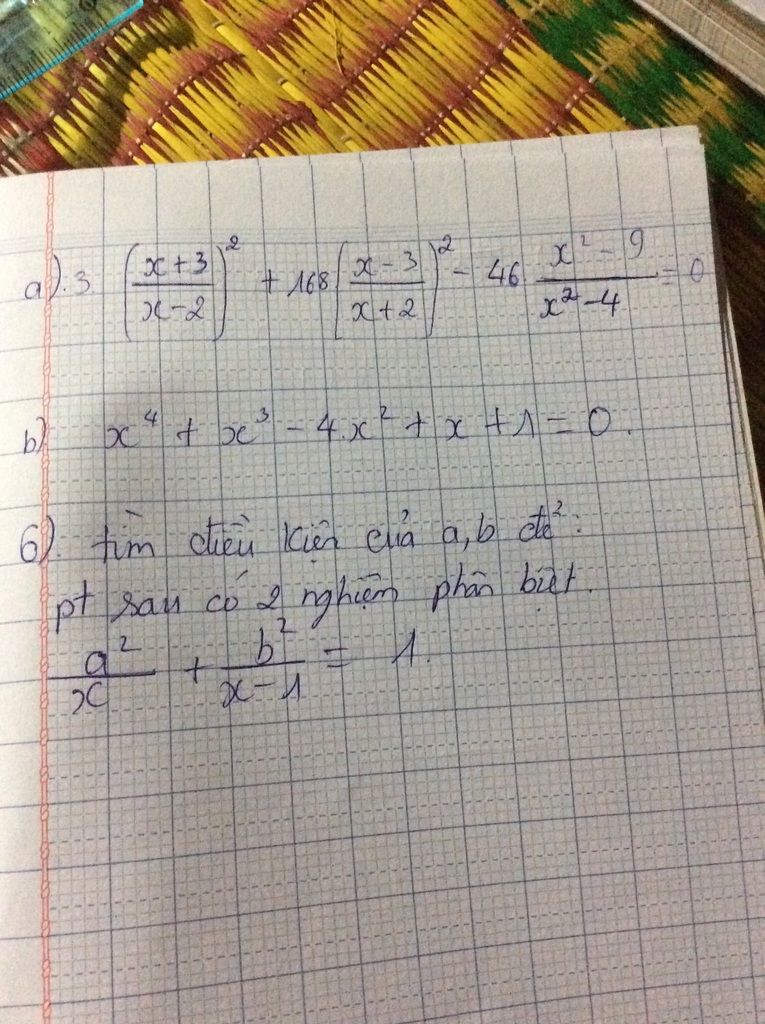 a). 3 (x+3/x-2)² + 168 (x-3/x+2)² - 46 x²-9/x²-4 = 0
b) x⁴ + x³ - 4.x² + x + 1 = 0.
6). tìm điều kiện của a, b để:
pt sau có 2 nghiệm phân biệt.
a²/x + b²/x-1 = 1.